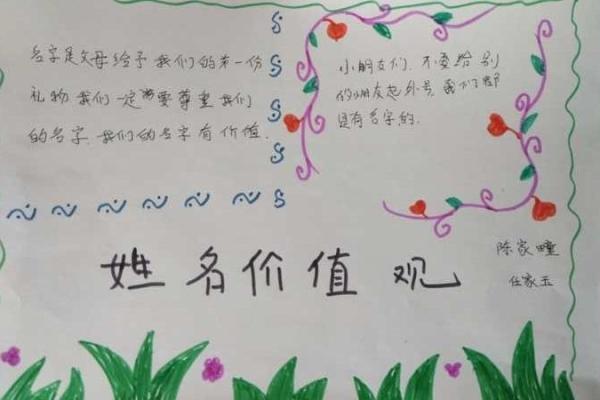 名字是父母给予我们的第一份
礼物我们一定需要尊重我们
的名字.我们的名字有价值.
小朋友们.不要给别
的朋友起外号,我们都
是有名字的.
姓名价值观
陈家瞳
任家玉